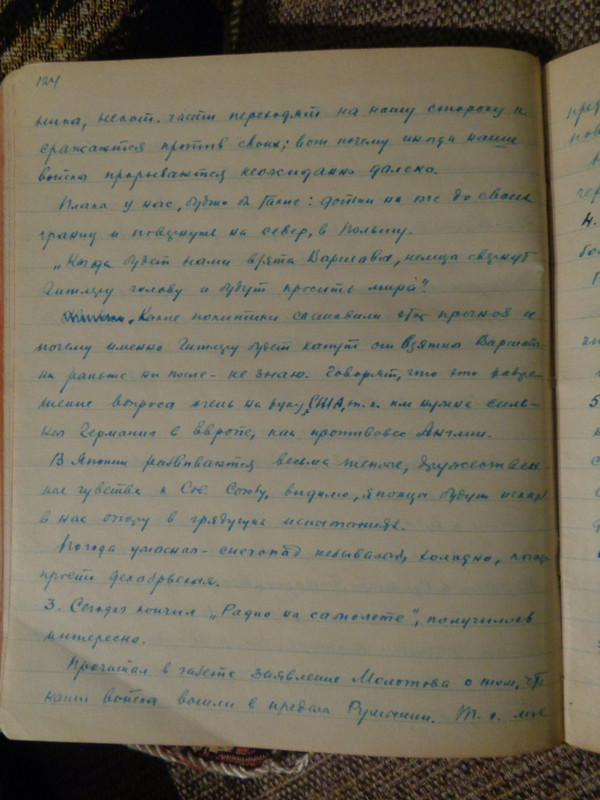 124
ника, некот. части переходят на нашу сторону и
сражаются против своих; вот почему иногда наши
войска прорываются неожиданно далеко.
Планы у нас, будто бы такие: дойти на юге до своих
границ и повернуть на север, в Польшу.
„Когда будет нами взята Варшава, немцы свернут
Гитлеру голову и будут просить мира".
Какие политики сташовили этот прогноз и
почему именно Гитлеру будет капут от взятия Варшавы
ни раньше ни после - не знаю. Говорят, что это разре-
шение вопроса очень на руку США, т.к. им нужна силь-
ная Германия в Европе, как противовес Англии.
В Японии развиваются весьма теплые, дружествен-
ные чувства к Сов. Союзу, видимо, японцы будут искать
в нас опору в грядущих испытаниях.
Погода ужасная - снегопад небывалый, холодно, погода
просто декабрьская.
3. Сегодня кончил „Радио на самолете", получилось
интересно.
Прочитал в газете заявление Молотова о том, что
наши войска вошли в пределы Румынии. Т. е. мы
4.
5